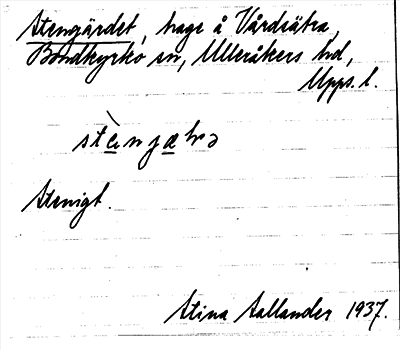 Stengärdet, hage å Vårdsätra,
Bondkyrko sn, Ulleråkers hd,
Upps. l.
Stenigt.
Stina Sallander 1937.